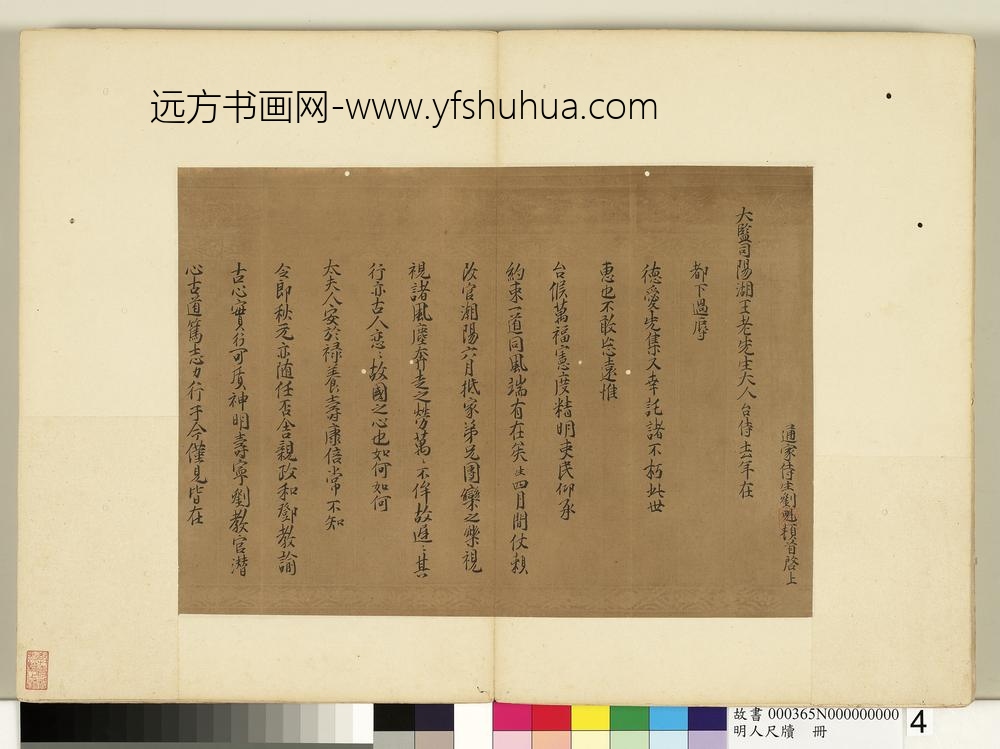 远方书画网-www.yfshuhua.com
通家侍生劉覬頓首啓上
大監司陽湖王老先生大人台侍去年在
都下過辱
德愛先集又幸託諸不朽此世
惠也不敢忘遠惟
台候萬福憲度精明吏民仰承
約束一道同風端有在矣生四月間仗賴
改官湘陽六月抵家弟兄團欒之樂視
視諸風塵奔走之勞萬〻不侔故遲〻其
行亦古人戀〻故國之心也如何如何
太夫人安於祿養壽康倍常不知
令郎秋元亦隨任否舍親政和鄧教諭
古心實行可質神明壽寧劉教官潛
心古道篤志力行于今僅見皆在
故書 000365N000000000
明人尺牘 冊
4